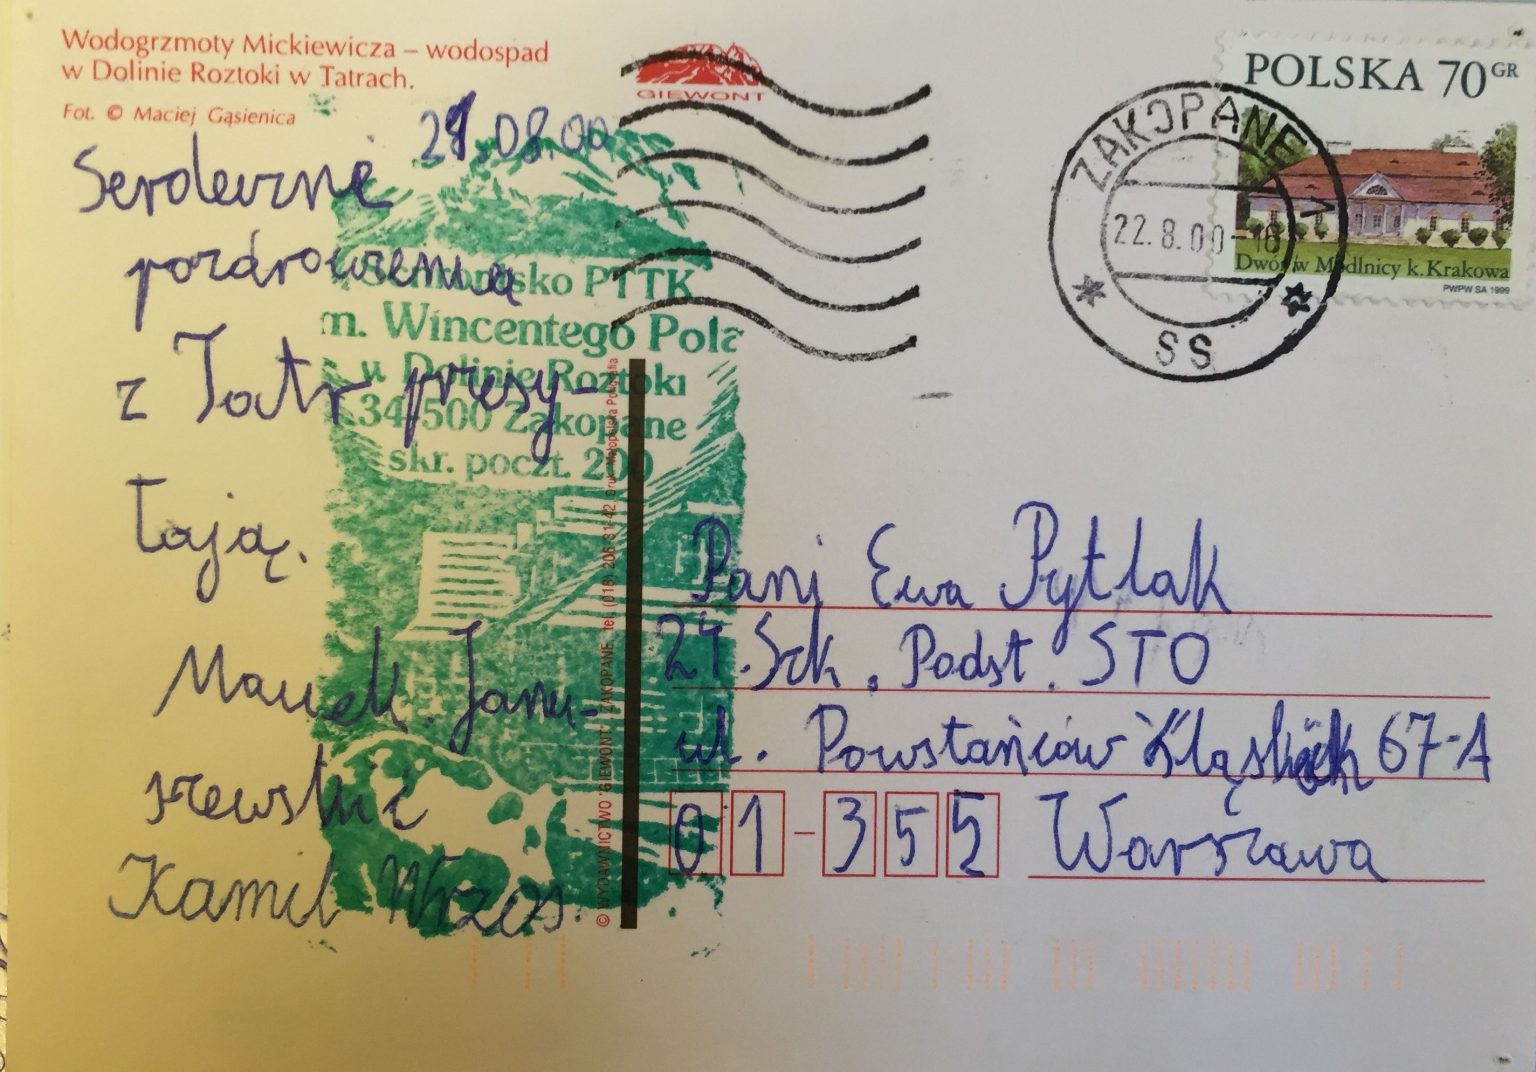 Wodogrzmoty Mickiewicza – wodospad
w Dolinie Roztoki w Tatrach.
Fot. © Maciej Gąsienica
GIEWONT
POLSKA 70 GR
Dwór w Modlnicy k. Krakowa
PWPW SA 1999
ZAKOPANE 1
22.8.00-16
SS
21.08.00
Serdeczne
pozdrowienia
z Tatr przesy-
łają.
Marek Janu-
szewski i
Kamil Wrzos.
Schronisko PTTK
im. Wincentego Pola
w Dolinie Roztoki
34-500 Zakopane
skr. poczt. 200
© WYDAWNICTWO "GIEWONT" ZAKOPANE tel. (018) 206-31-42, Druk: Małopolska Poligrafia
Pani Ewa Pytlak
24. Szk. Podst. STO
ul. Powstańców Śląskich 67-A
01-355 Warszawa